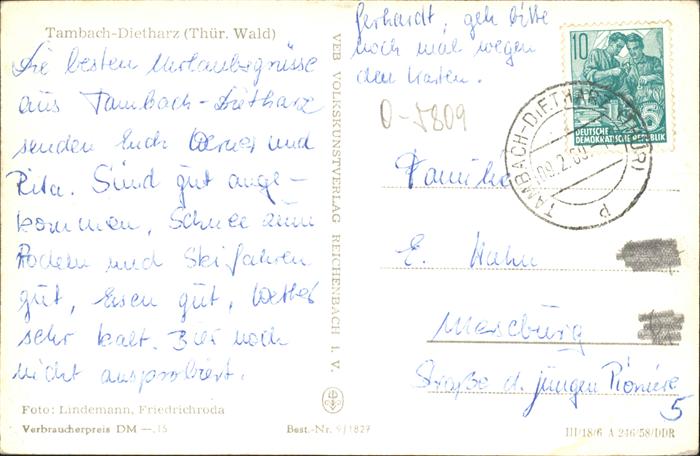 Tambach-Dietharz (Thür. Wald)
Die besten Urlaubsgrüsse
aus Tambach-Dietharz
senden Euch Werner und
Rita. Sind gut ange-
kommen, Schnee zum
Rodeln und Skifahren
gut, Essen gut, Wetter
sehr kalt. Bier noch
nicht ausprobiert.
Foto: Lindemann, Friedrichroda
Verbraucherpreis DM —,15
Best.-Nr. 9/1829
VEB VOLKSKUNSTVERLAG REICHENBACH I. V.
Gerhardt, geh bitte
noch mal wegen
den Karten.
O-5809
10
DEUTSCHE
DEMOKRATISCHE REPUBLIK
TAMBACH-DIETHARZ (THÜR)
09.2.60
Familie
E. Hahn
Merseburg
Straße d. jungen Pioniere
5
III/18/6 A 246/58/DDR